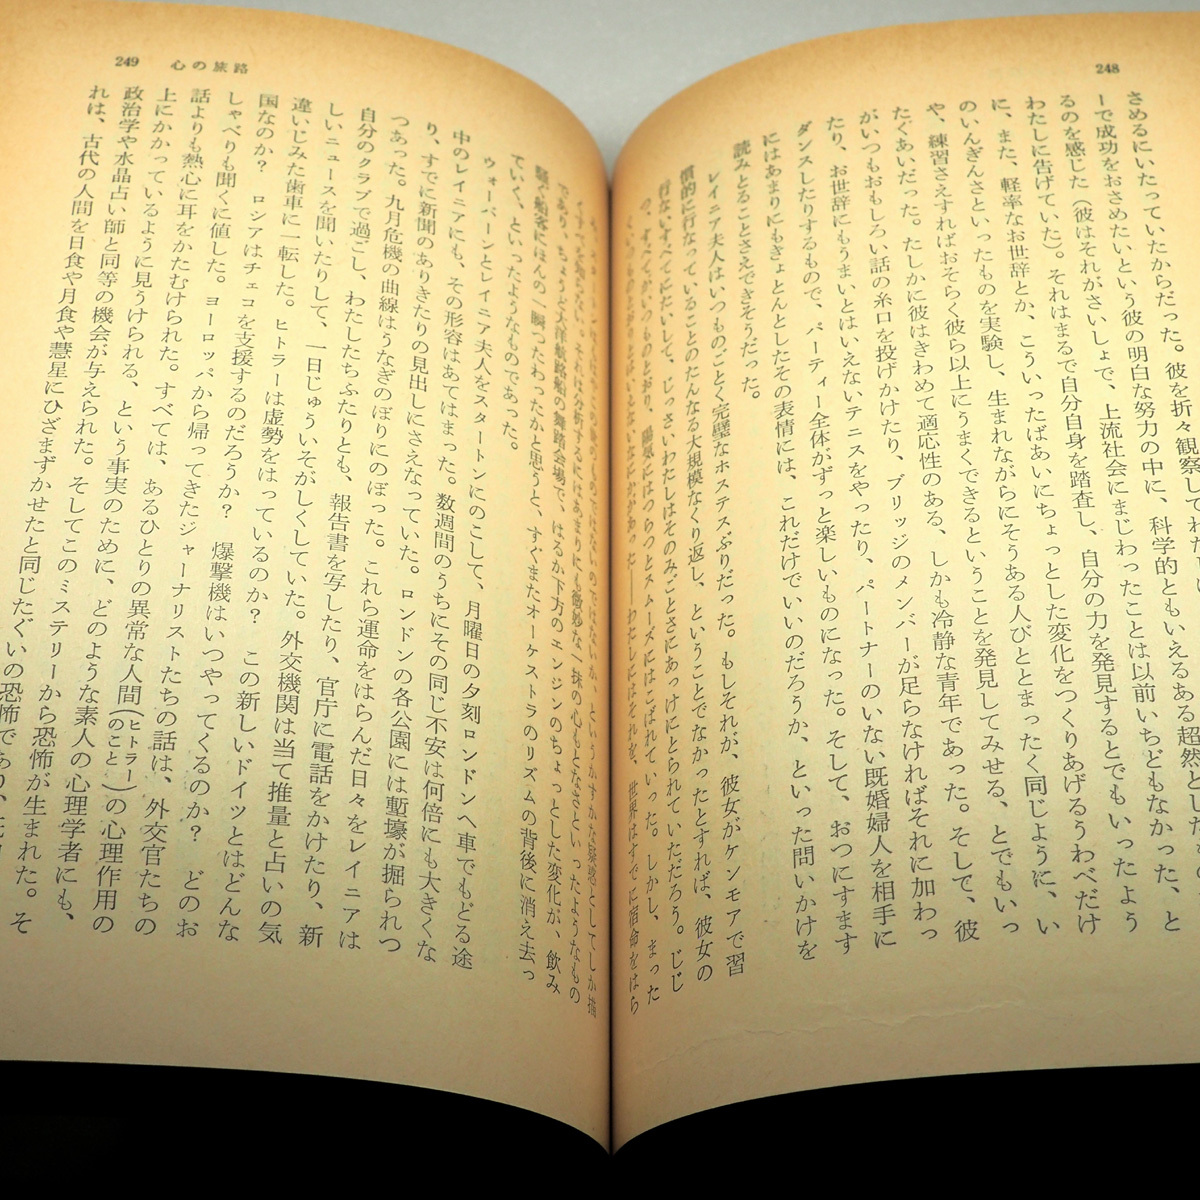 248
さめるにいたっていたからだった。彼を折々観察して
ーで成功をおさめたいという彼の明白な努力の中に、科学的ともいえるある超然とした
るのを感じた（彼はそれがさいしょで、上流社会にまじわったことは以前いちどもなかった、と
わたしに告げていた）。それはまるで自分自身を踏査し、自分の力を発見するとでもいったよう
に、また、軽率なお世辞とか、こういったばあいにちょっとした変化をつくりあげるうわべだけ
のいんぎんさといったものを実験し、生まれながらにそうある人びととまったく同じように、い
や、練習さえすればおそらく彼ら以上にうまくできるということを発見してみせる、とでもいっ
たぐあいだった。たしかに彼はきわめて適応性のある、しかも冷静な青年であった。そして、彼
がいつもおもしろい話の糸口を投げかけたり、ブリッジのメンバーが足らなければそれに加わっ
たり、お世辞にもうまいとはいえないテニスをやったり、パートナーのいない既婚婦人を相手に
ダンスしたりするもので、パーティー全体がずっと楽しいものになった。そして、おつにすます
にはあまりにもきょとんとしたその表情には、これだけでいいのだろうか、といった問いかけを
読みとることさえできそうだった。
レイニア夫人はいつものごとく完璧なホステスぶりだった。もしそれが、彼女がケンモアで習
慣的に行なっていることのたんなる大規模なくり返し、ということでなかったとすれば、彼女の
行ないすべてにたいして、じっさいわたしはそのみごとさにあっけにとられていただろう。じじ
つ、すべてがいつものとおり、陽気にはつらつとスムーズにはこばれていった。しかし、まった
わたしにはそれを、世界はすでに宿命をはら
249 心の旅路
というかすかな疑惑としてしか描
それは分析するにはあまりにも微妙な一抹の心もとなさといったようなもの
であり、ちょうど大洋航路船の舞踏会場で、はるか下方のエンジンのちょっとした変化が、飲み
騒ぐ船客にほんの一瞬つたわったかと思うと、すぐまたオーケストラのリズムの背後に消え去っ
ていく、といったようなものであった。
ウォーバーンとレイニア夫人をスタートンにのこして、月曜日の夕刻ロンドンへ車でもどる途
中のレイニアにも、その形容はあてはまった。数週間のうちにその同じ不安は何倍にも大きくな
り、すでに新聞のありきたりの見出しにさえなっていた。ロンドンの各公園には塹壕が掘られつ
つあった。九月危機の曲線はうなぎのぼりにのぼった。これら運命をはらんだ日々をレイニアは
自分のクラブで過ごし、わたしたちふたりとも、報告書を写したり、官庁に電話をかけたり、新
しいニュースを聞いたりして、一日じゅういそがしくしていた。外交機関は当て推量と占いの気
違いじみた歯車に一転した。ヒトラーは虚勢をはっているのか？　この新しいドイツとはどんな
国なのか？　ロシアはチェコを支援するのだろうか？　爆撃機はいつやってくるのか？　どのお
しゃべりも聞くに値した。ヨーロッパから帰ってきたジャーナリストたちの話は、外交官たちの
話よりも熱心に耳をかたむけられた。すべては、あるひとりの異常な人間（ヒトラーのこと）の心理作用の
上にかかっているように見うけられる、という事実のために、どのような素人の心理学者にも、
政治学や水晶占い師と同等の機会が与えられた。そしてこのミステリーから恐怖が生まれた。そ
れは、古代の人間を日食や月食や彗星にひざまずかせたと同じたぐいの恐怖であり、